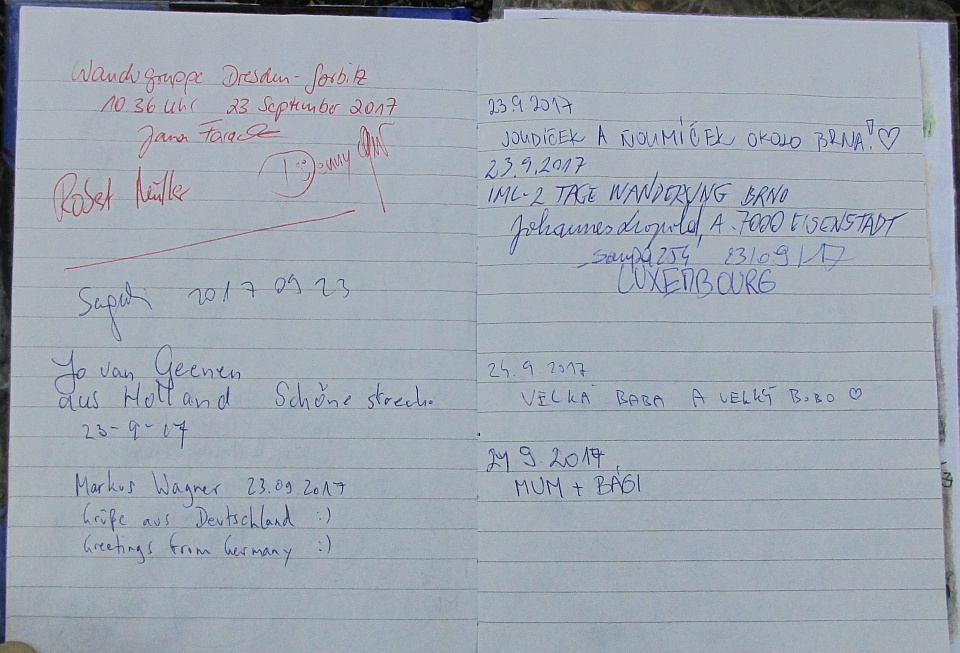 Wandergruppe Dresden-Gorbitz
10 36 Uhr 23 September 2017
Jana
Jenny
Robert Müller
2017 09 23
Jo van Geenen
aus Holland Schöne strecke
23-9-17
Markus Wagner 23.09 2017
Grüße aus Deutschland :)
Greetings from Germany :)
23.9.2017
JOUDÍČEK A ŇOUMÍČEK OKOLO BRNA! ♡
23.9.2017
IML-2 TAGE WANDERUNG BRNO
Johannes Leopold, A-7000 EISENSTADT
23/09/17
LUXEMBOURG
24.9 2017
VELKÁ BABA A VELKÝ BOBO ♡
24 9.2017
MUM + BÁGI